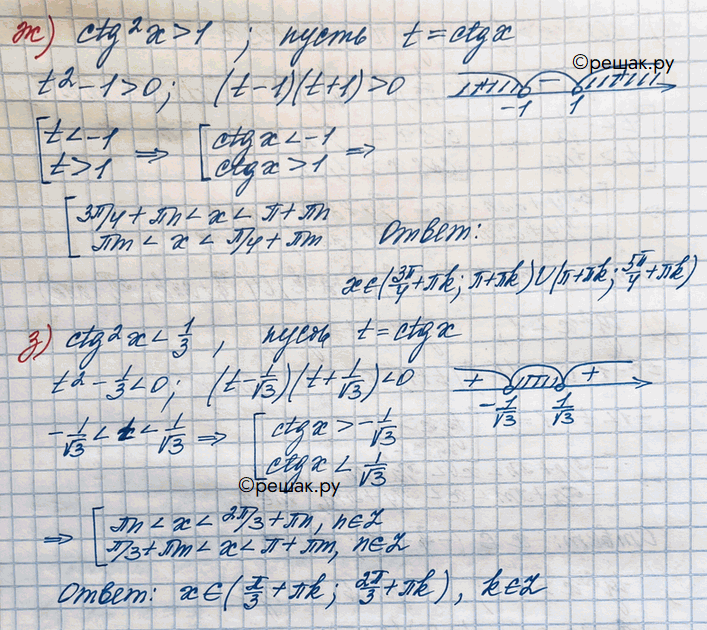 ж) ctg²x>1 ; пусть t=ctgx
©решак.ру
t²-1>0; (t-1)(t+1)>0 + - + -1 1
[t<-1 t>1 ⇒ [ctgx<-1 ctgx>1 ⇒
[3π/4+πn<x<π+πn
πm<x<π/4+πm Ответ:
x∈(3π/4+πk; π+πk)∪(π+πk; 5π/4+πk)
з) ctg²x<1/3, пусть t=ctgx
t²-1/3<0; (t-1/√3)(t+1/√3)<0 + +
-1/√3 1/√3
-1/√3<t<1/√3 ⇒ [ctgx>-1/√3
ctgx<1/√3
©решак.ру
⇒ [πn<x<2π/3+πn, n∈Z
π/3+πm<x<π+πm, n∈Z
Ответ: x∈(π/3+πk; 2π/3+πk), k∈Z